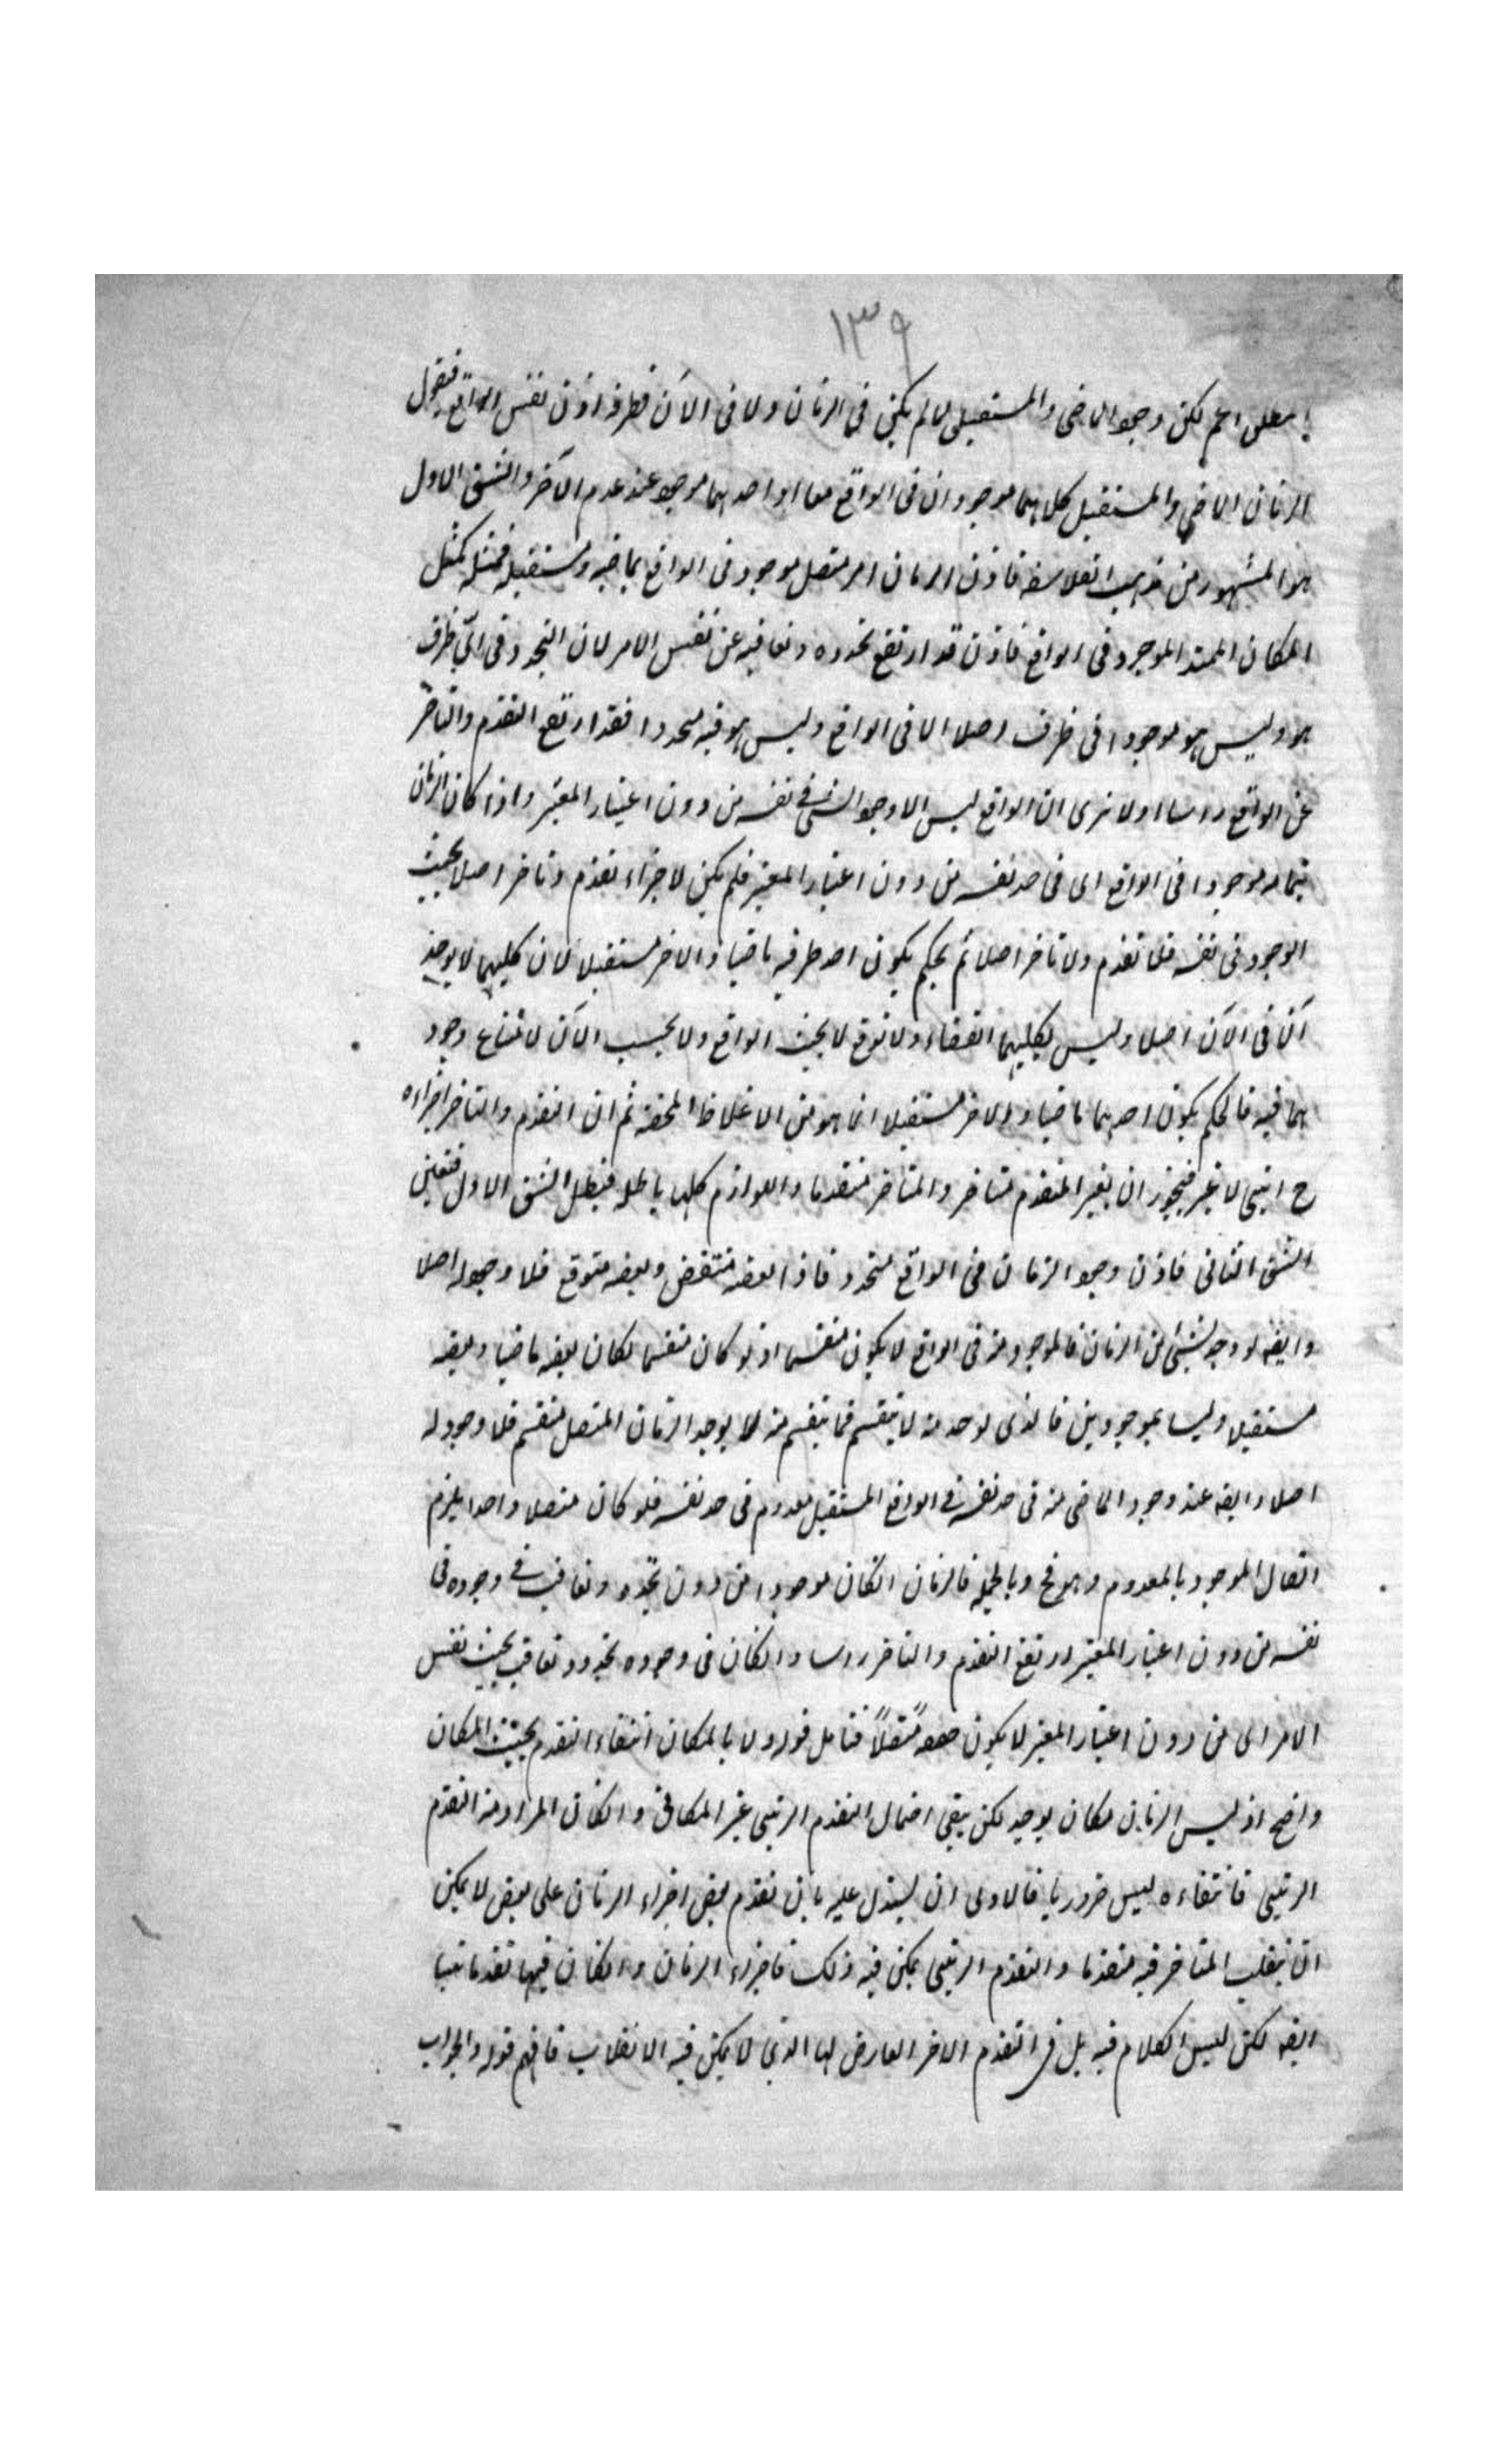 ١٣٩
اعم لكن وجود الماضى والمستقبل لما لم يكن فى الزمان ولا فى الآن فظرفه اذن نفس الواقع فنقول
الزمان الماضى والمستقبل كلاهما موجودان فى الواقع معا او احدهما موجود عند عدم الآخر والشق الاول
هو المشهور من مذهب الفلاسفه فاذن الزمان امر متصل موجود فى الواقع بماضيه ومستقبله فمثله كمثل
المكان الممتد الموجود فى الواقع فاذن قد ارتفع تجدده وتعاقبه عن نفس الامر لان التجدد فى اى ظرف
هو وليس هو موجودا فى ظرف اصلا الا فى الواقع وليس هو فيه متجددا فقد ارتفع التقدم والتاخر
عن الواقع راسا اولا ترى ان الواقع ليس الا وجود الشئ فى نفسه من دون اعتبار المعتبر واذا كان الزمان
بتمامه موجودا فى الواقع اى فى حد نفسه من دون اعتبار المعتبر فلم يكن لاجزاءه تقدم وتاخر اصلا بحيث
الوجود فى نفسه فلا تقدم ولا تاخر اصلا ثم يحكم بكون احد طرفيه ماضيا والاخر مستقبلا لان كليهما لا يوجد
آن فى الآن اصلا وليس لكليهما انقضاء ولا توقع لا بحيث الواقع ولا بحسب الآن لامتناع وجود
هما فيه فالحكم بكون احدهما ماضيا والاخر مستقبلا انما هو من الاغلاط المحضه ثم ان التقدم والتاخر اجزاءه
ح رتبى لا غير فيجوز ان يصير المتقدم متاخر والمتاخر متقدما واللوازم كلها باطله فبطل الشق الاول فتعين
الشق الثانى فاذن وجود الزمان فى الواقع متجدد فاذا بعضه منقض وبعضه متوقع فلا وجود له اصلا
وايضه لو وجد شئ من الزمان فالموجود منه فى الواقع لا يكون منقسما اذ لو كان منقسما لكان بعضه ماضيا وبعضه
مستقبلا وليسا بموجودين فالذى يوجد منه لا ينقسم فما ينقسم منه لا يوجد الزمان المتصل منقسم فلا وجود له
اصلا وايضه عند وجود الماضى منه فى حد نفسه فى الواقع المستقبل معدوم فى حد نفسه فلو كان متصلا واحدا يلزم
اتصال الموجود بالمعدوم وهو مح وبالجمله فالزمان ان كان موجودا من دون تجدد وتعاقب فى وجوده فى
نفسه من دون اعتبار المعتبر ارتفع التقدم والتاخر راسا وان كان فى وجوده تجدد وتعاقب بحيث نفس
الامر اى من دون اعتبار المعتبر لا يكون متصلاً فتامل قوله ولا بالمكان انتفاء التقدم بحيث المكان
واضح اذ ليس للزمان مكان يوجد لكن يبقى احتمال التقدم الرتبى غير المكانى وان كان المراد منه التقدم
الرتبى فانتفاءه ليس ضروريا فالاولى ان يستدل عليه بان تقدم بعض اجزاء الزمان على بعض لا يمكن
ان ينقلب المتاخر فيه متقدما والتقدم الرتبى يمكن فيه ذلك فاجزاء الزمان وان كان فيها تقدما رتبيا
ايضه لكن ليس الكلام فيه بل فى التقدم الاخر العارض لها الذى لا يمكن فيه الانقلاب فافهم قوله والجواب